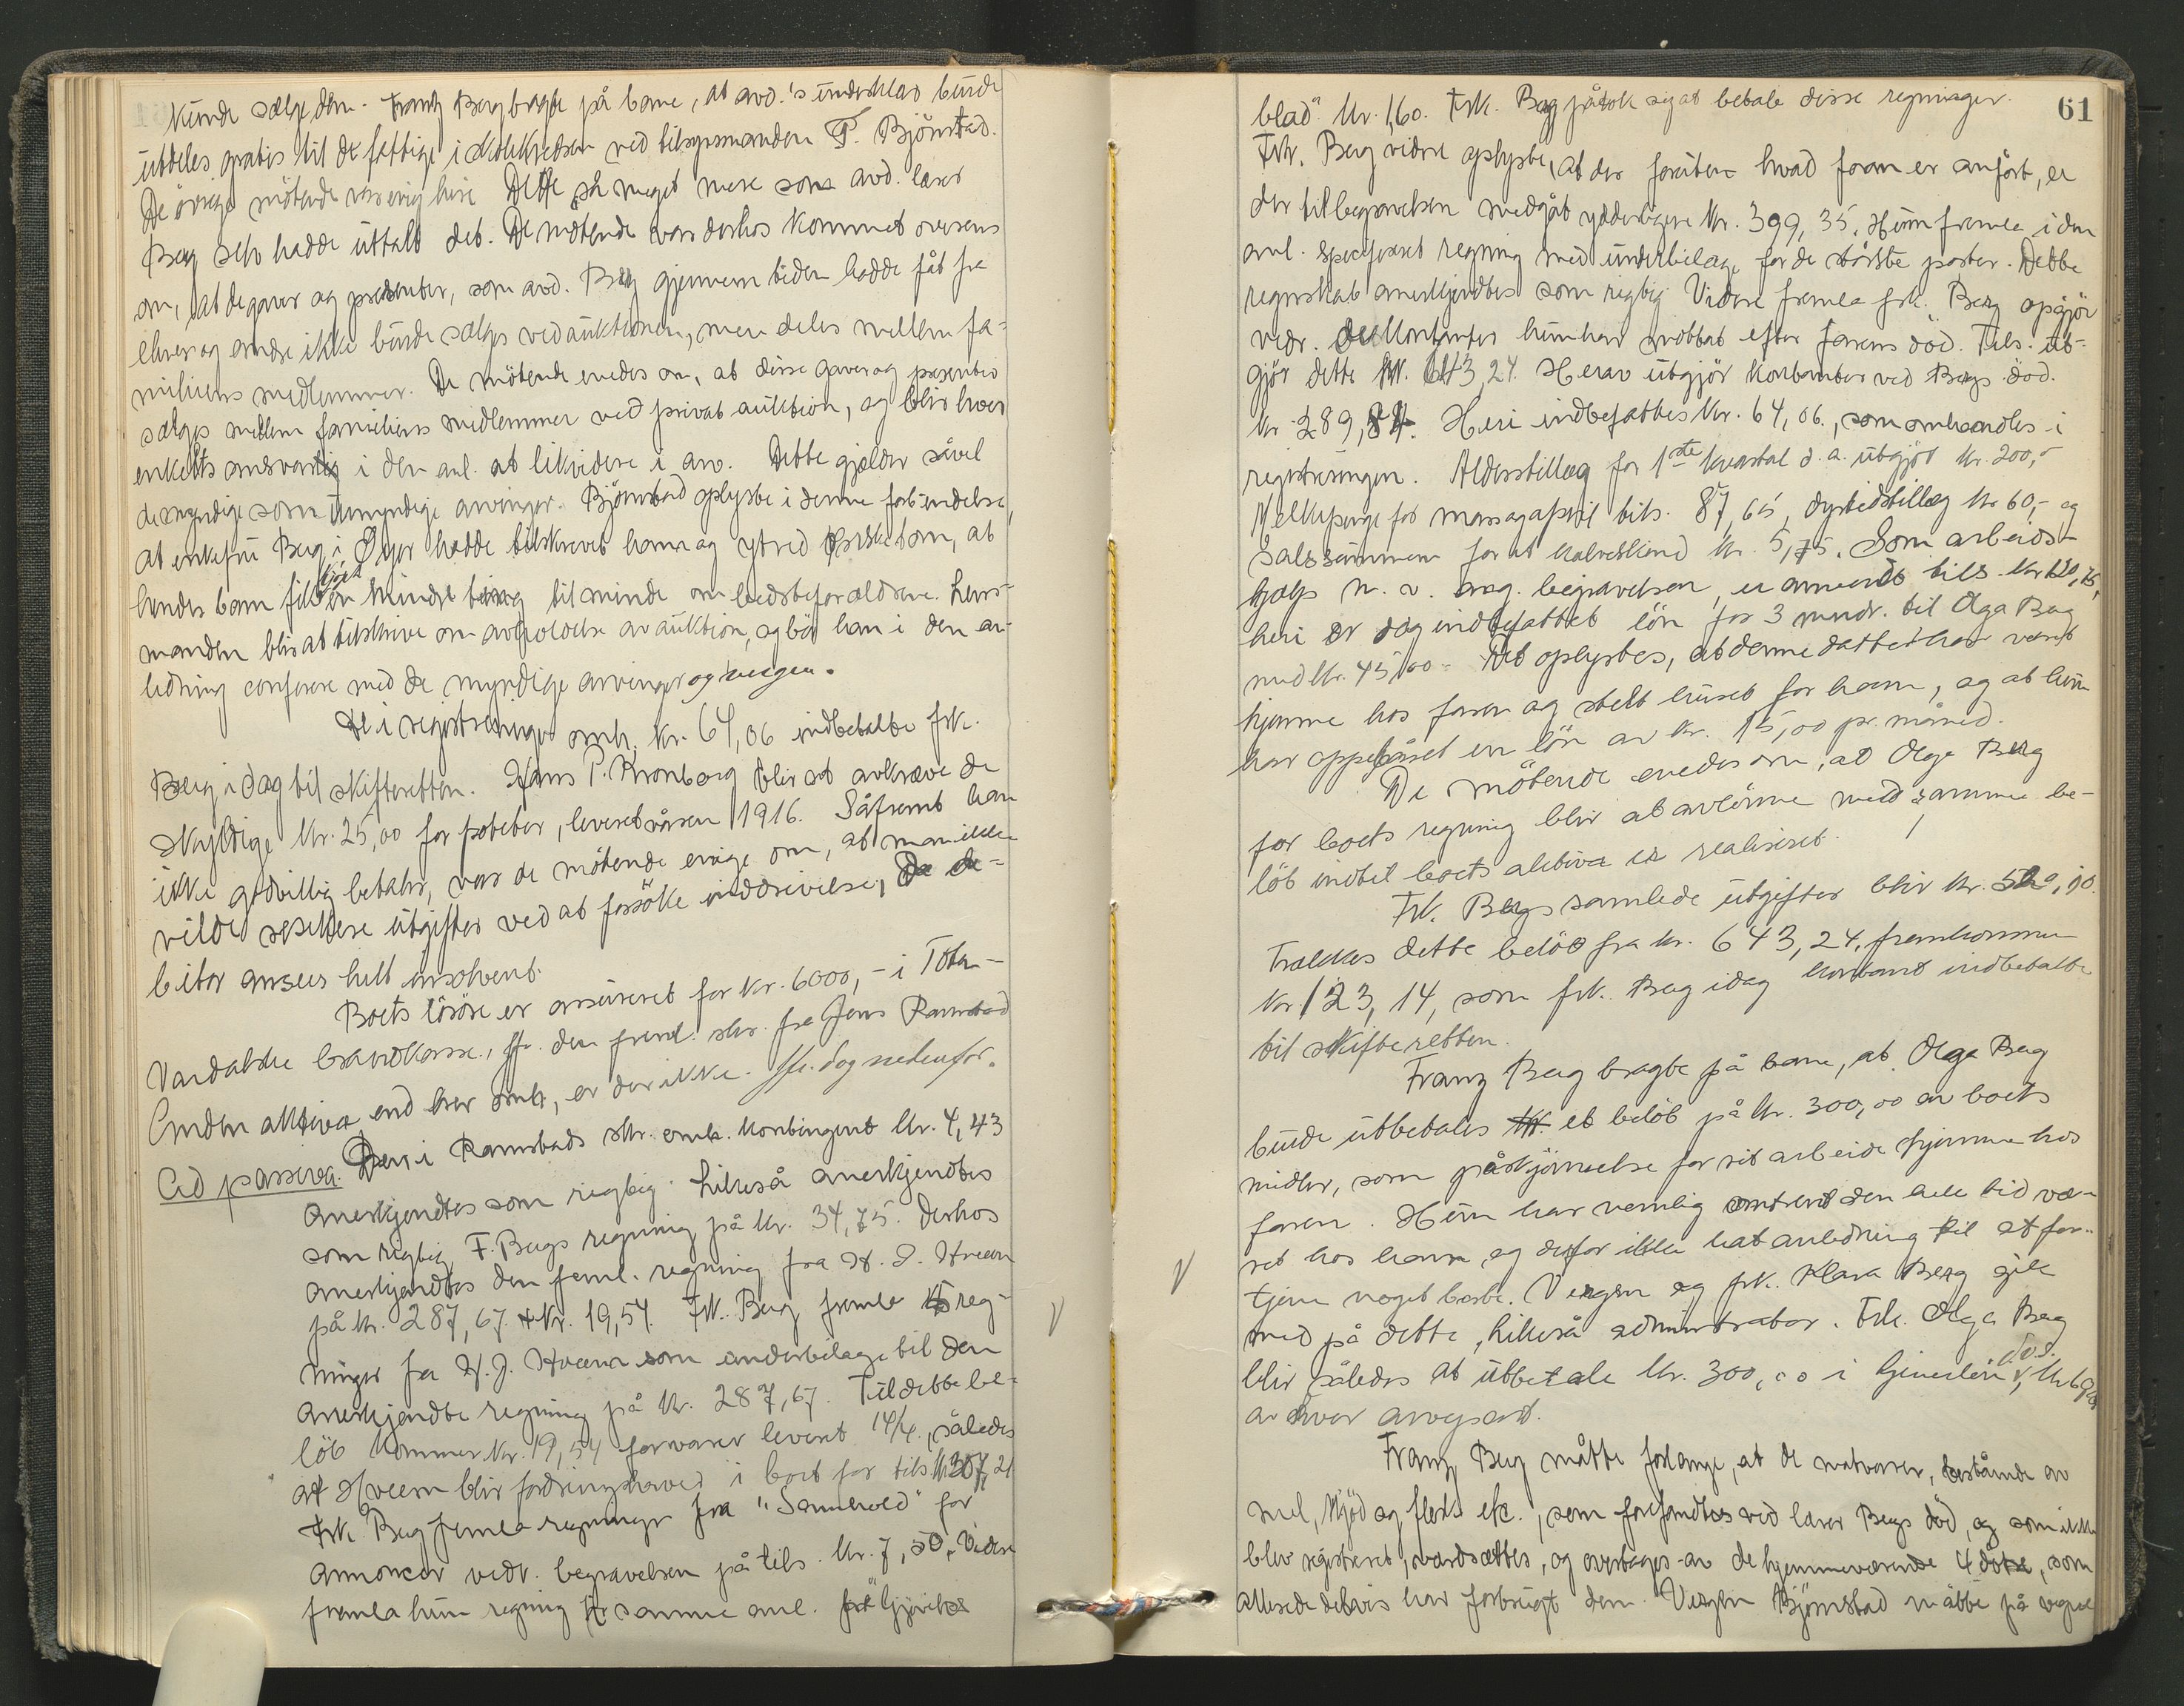 kunde sælge dem. Frantz Berg bragte på bane, at avd.'s underklær burde
utdeles gratis til de fattige i skolekredsen ved tilsynsmanden P. Björnstad.
De övrige mötende var enig heri. Dette så meget mere som avd. lærer
Berg selv hadde uttalt det. De mötende var derhos kommet overens
om, at de gaver og presenter, som avd. Berg gjennem tiden hadde fåt fra
elever og andre ikke burde sælges ved auktionen, men deles mellem fa-
miliens medlemmer. De mötende enedes om, at disse gaver og presenter
sælges mellem familiens medlemmer ved privat auktion, og blir hver
enkelts ansvarlig i den anl. at likvidere i arv. Dette gjælder såvel
de myndige som umyndige arvinger. Björnstad oplyste i denne forbindelse,
at enkefru Berg i Öyer hadde tilskrevet ham og ytred önske om, at
hendes barn fik en mindre ting til minde om bedsteforældrene. Lens-
manden blir at tilskrive om avholdelse av auktion, og bör han i den an-
ledning conferere med de myndige arvinger og vergen.
De i registreringen omh. kr. 64,06 indbetalte frk.
Berg idag til skifteretten. Hans P. Kronborg blir at avkræve de
skyldige kr. 25,00 for poteter, leveret våren 1916. Såfremt han
ikke godvillig betaler, var de mötende enige om, at man ikke
vilde riskere utgifter ved at forsöke inddrivelse, da de-
bitor ansees helt insolvent.
Boets lösöre er assureret for kr. 6000,- i Toten-
Vardalske brandkasse, jfr. den freml. skr. fra Jens Ramstad
Anden aktiva end her omh., er der ikke. Jfr. dog nedenfor.
Ad passiva. Den i Ramstads skr. omh. kontingent kr. 4,43
anerkjendtes som rigtig. Likeså anerkjendtes
som rigtig F. Bergs regning på kr. 34,75. Derhos
anerkjendtes den freml. regning fra H. J. Hveem
på kr. 287,67 + kr. 19,54. Frk. Berg fremla reg-
ninger fra H. J. Hveem som underbilage til den
anerkjendte regning på kr. 287,67. Til dette be-
löb kommer kr. 19,54 for varer leveret 14/4, således
at Hveem blir fordringshaver i boet for tils. kr. 307,21
Frk. Berg fremla regninger fra "Samhold" for
annoncer vedr. begravelsen på tils. kr. 7,50. Videre
fremla hun regning for samme anl. fra "Gjöviks
61
blad" kr. 1,60. Frk. Berg påtok sig at betale disse regninger.
Frk. Berg videre oplyste, at der foruten hvad foran er anfört, er
der til begravelsen medgåt ydderligere kr. 399,35. Hun fremla i den
anl. specificeret regning med underbilage for de störste poster. Dette
regnskab anerkjendtes som rigtig. Videre fremla frk. Berg opgjör
vedr. de kontanter hun har mottat efter farens död. Tils. ut-
gjör dette kr. 643,24. Herav utgjör kontanter ved Bergs död.
kr. 289,84. Heri indbefattes kr. 64,06, som omhandles i
registreringen. Alderstillæg for 1ste kvartal d. a. utgjör kr. 200,-
Melkepenge for mars og april tils. 87,65, dyrtidstillæg kr. 60,- og
salssummen for et kalveskind kr. 5,75. Som arbeids-
hjælp m. v. ang. begravelsen, er anvendt tils. kr. 120,75,
heri er dog indbefattet lön for 3 mndr. til Olga Berg
med kr. 45,00. Det oplystes, at denne datter har været
hjemme hos faren og stelt huset for ham, og at hun
har oppebåret en lön av kr. 15,00 pr. måned.
De mötende enedes om, at Olga Berg
for boets regning blir at avlönne med samme be-
löb indtil boets aktiva er realiseret.
Frk. Bergs samlede utgifter blir kr. 520,10.
Trækkes dette belöb fra kr. 643,24, fremkommer
kr. 123,14, som frk. Berg idag kontant indbetalte
til skifteretten.
Franz Berg bragte på bane, at Olga Berg
burde utbetales et belöb på kr. 300,00 av boets
midler, som påskjönnelse for sit arbeide hjemme hos
faren. Hun har nemlig omtrent den hele tid væ-
ret hos ham, og derfor ikke hat anledning til at for-
tjene noget borte. Vergen og frk. Klara Berg gik
med på dette, likeså administrator. Frk. Olga Berg
blir således at utbetale kr. 300,00 i tjenerlön, d.v.s.
av hver arvepart.
Franz Berg måtte forlange, at de matvarer, bestående av
mel, kjöd og flesk etc., som forefandtes ved lærer Bergs död, og som ikke
blev registreret, værdsættes, og overtages av de hjemmeværende 4 dötre, som
allerede delvis har forbrugt dem. Vergen Björnstad måtte på vegne